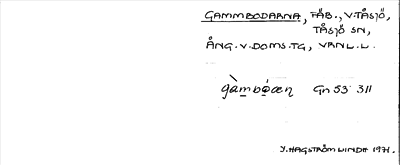 GAMMBODARNA, FÄB., V.TÅSJÖ,
TÅSJÖ SN,
ÅNG.V.DOMS.TG, VRNL.L.
gàmbo̤æɳ Gn 53 311
Y.HAGSTRÖM LINDH 1971.